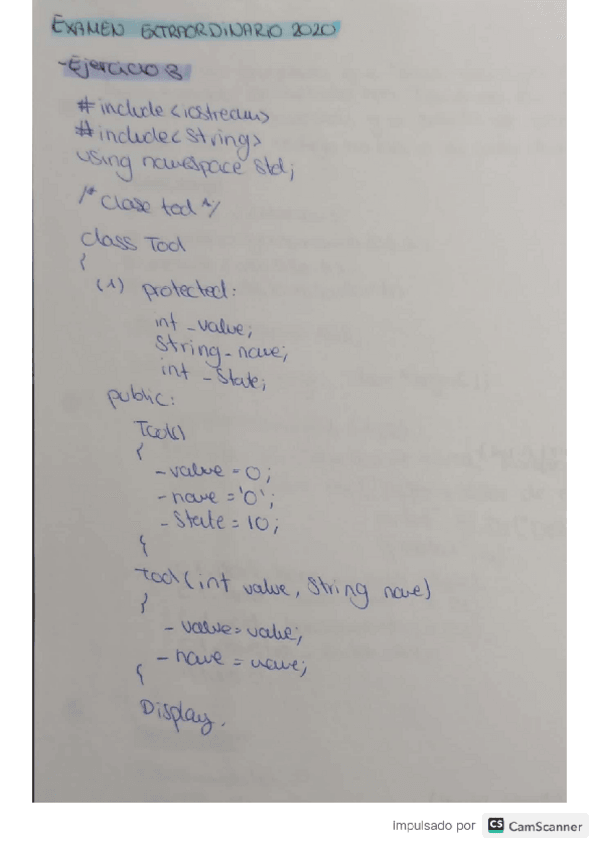 EXAMEN EXTRAORDINARIO 2020
-Ejercicio 8
#include <iostream>
#include <string>
using namespace std;
/* Clase tool */
class Tool
{
(1) protected:
int _value;
string _name;
int _State;
public:
Tool()
{
_value = 0;
_name = '0';
_State = 10;
}
Tool (int value, string name)
{
_value = value;
_name = name;
}
Display.
Impulsado por CS CamScanner